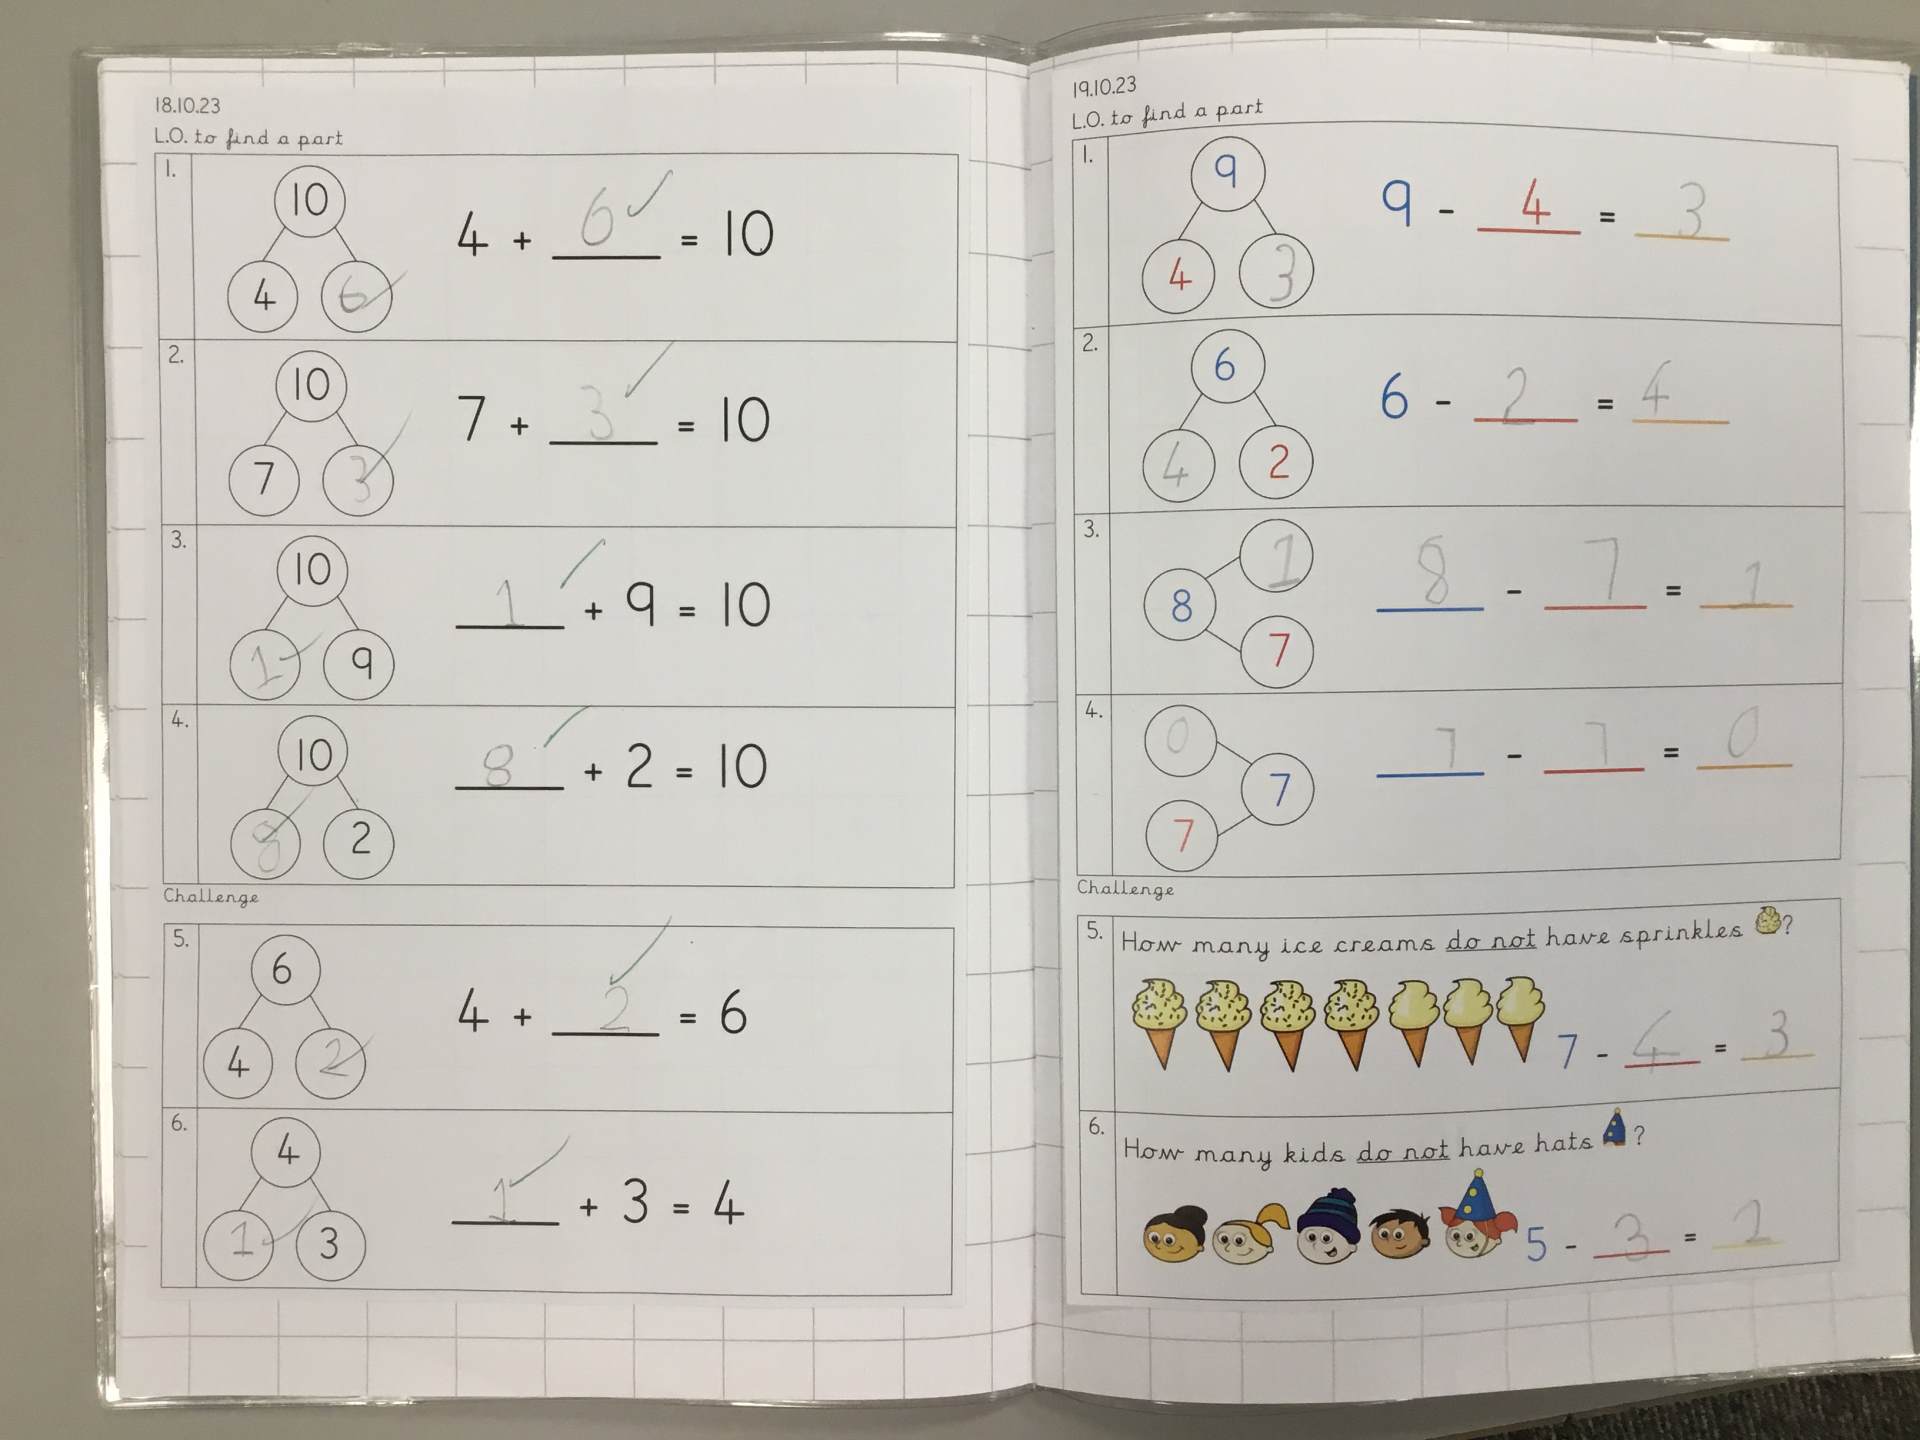 18.10.23
L.O. to find a part
1.
10
4 6
4 + 6 = 10
2.
10
7 3
7 + 3 = 10
3.
10
1 9
1 + 9 = 10
4.
10
8 2
8 + 2 = 10
Challenge
5.
6
4 2
4 + 2 = 6
6.
4
1 3
1 + 3 = 4
19.10.23
L.O. to find a part
1.
9
4 3
9 - 4 = 3
2.
6
4 2
6 - 2 = 4
3.
1
8
7
8 - 7 = 1
4.
0
7
7
7 - 7 = 0
Challenge
5.
How many ice creams do not have sprinkles ?
7 - 4 = 3
6.
How many kids do not have hats ?
5 - 3 = 2